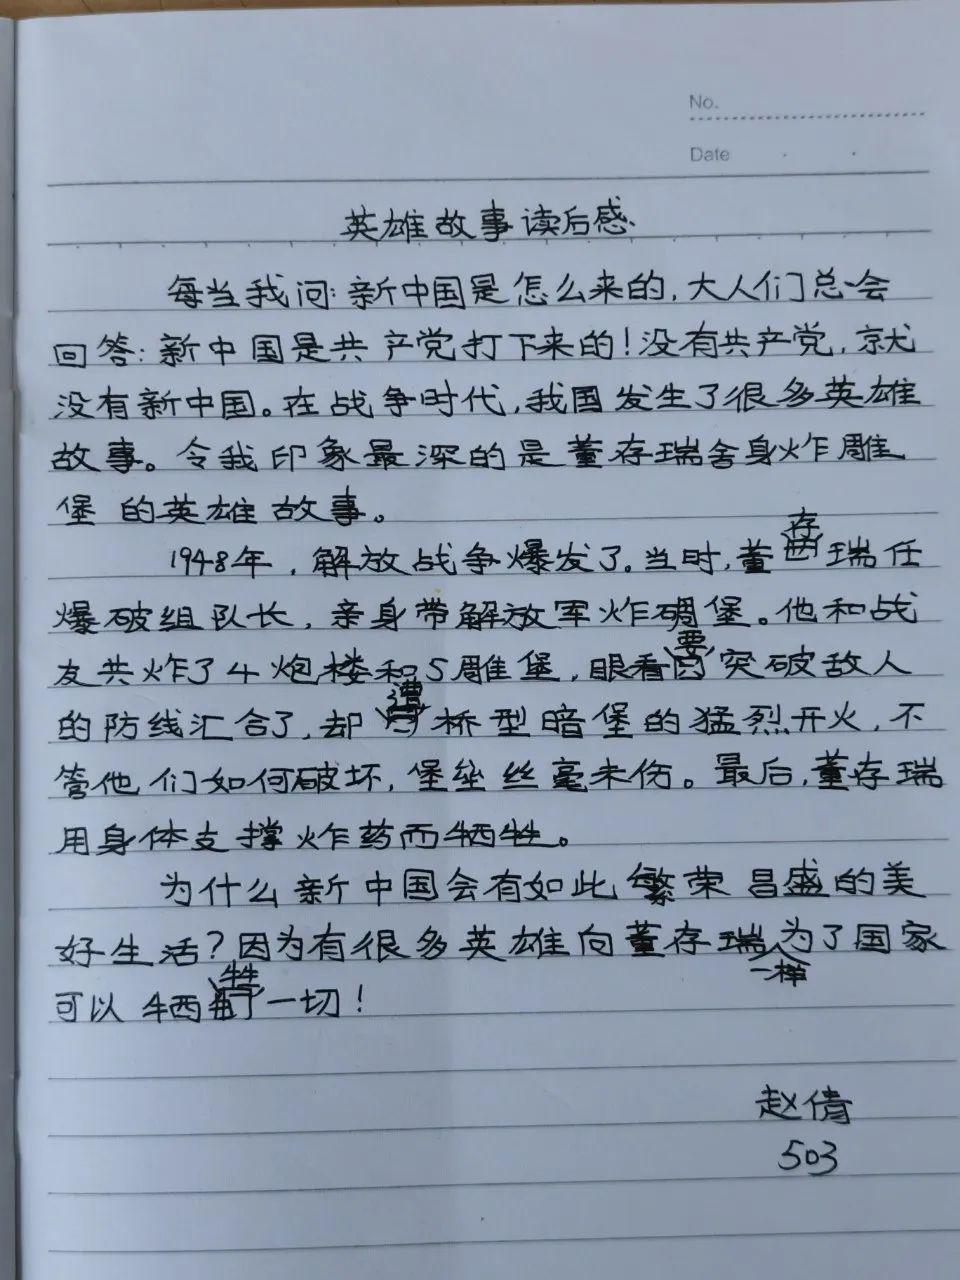 No.
Date
英雄故事读后感
每当我问:新中国是怎么来的,大人们总会
回答:新中国是共产党打下来的!没有共产党,就
没有新中国。在战争时代,我国发生了很多英雄
故事。令我印象最深的是董存瑞舍身炸雕
堡的英雄故事。
1948年,解放战争爆发了。当时,董存瑞任
爆破组队长,亲身带解放军炸碉堡。他和战
友共炸了4炮楼和5雕堡,眼看要突破敌人
的防线汇合了,却遭桥型暗堡的猛烈开火,不
管他们如何破坏,堡垒丝毫未伤。最后,董存瑞
用身体支撑炸药而牺牲。
为什么新中国会有如此繁荣昌盛的美
好生活?因为有很多英雄向董存瑞一样为了国家
可以牺牲了一切!
赵倩
503